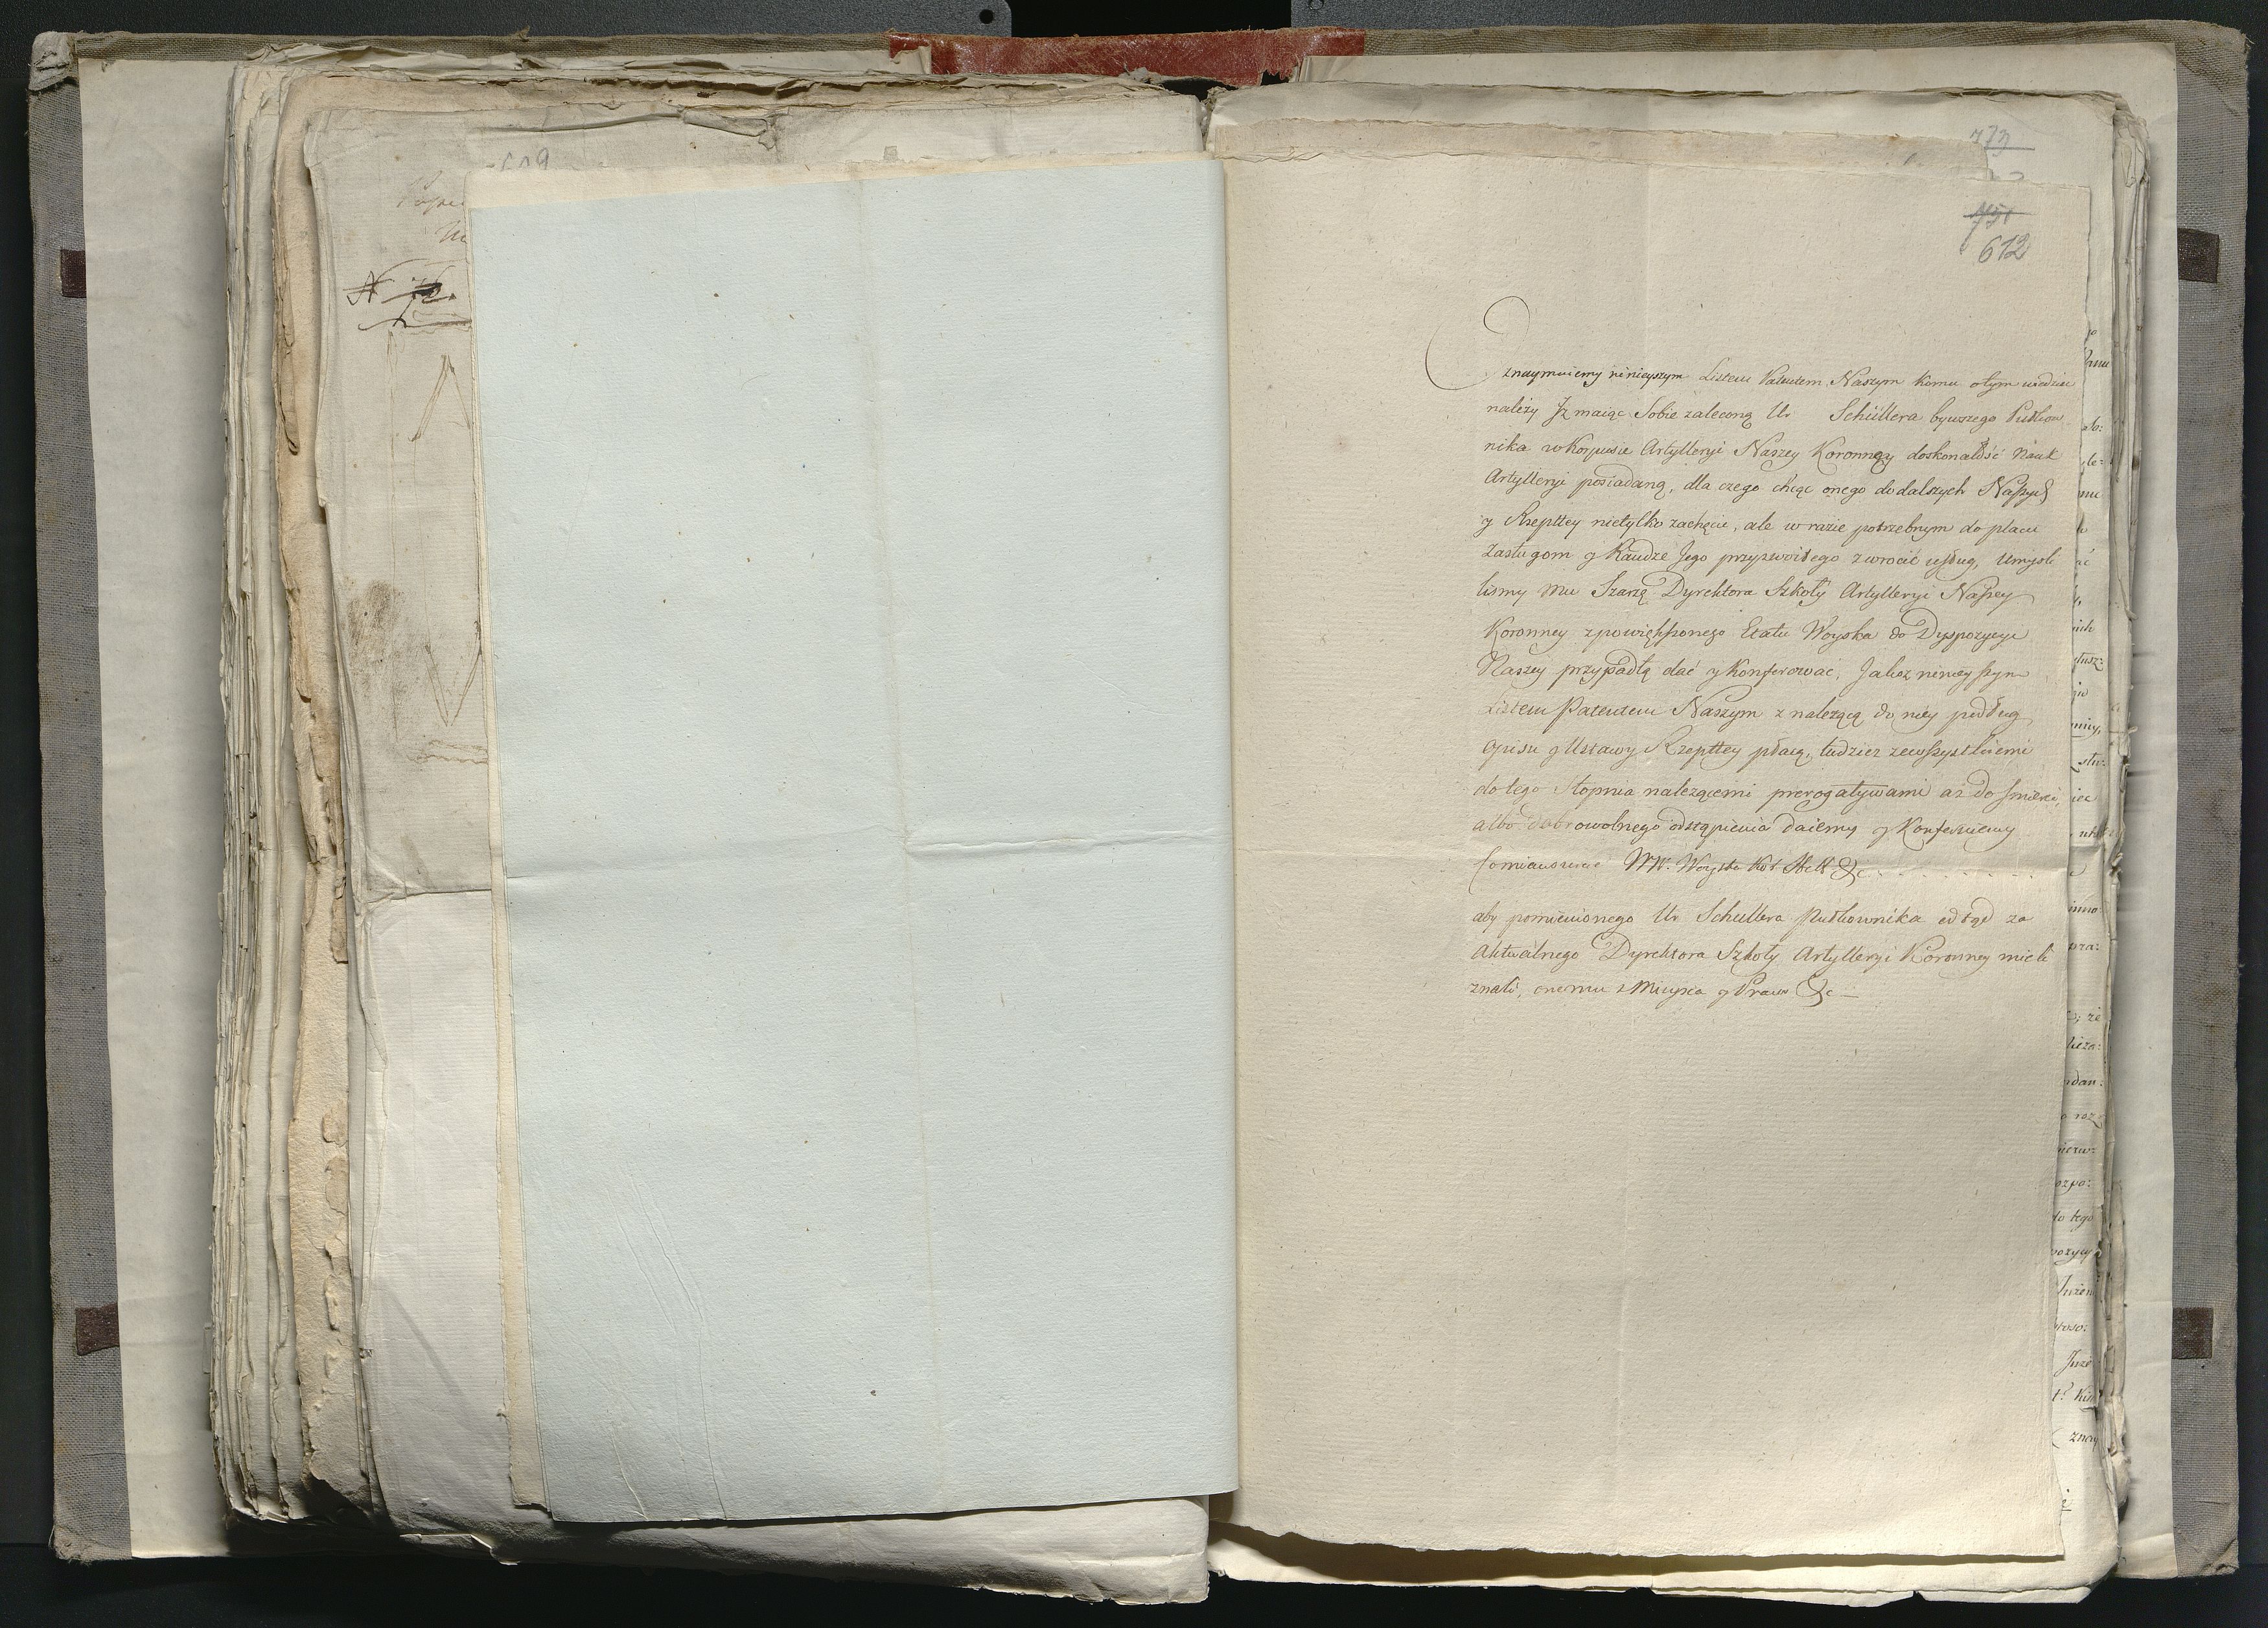 619
N
773
751
612
Oznaymuiemy ninieyszym Listem Patentem Naszym komu o tym wiedzieć
należy Jz maiąc Sobie zaleconą Ur Schüllera bywszego Pułkow
nika w Korpusie Artylleryi Naszey Koronney doskonałość Nauk
Artylleryi posiadaną, dla czego chcąc onego do dalszych Naszych
y Rzeptey nietylko zachęcić, ale w razie potrzebnym do placu
zasługom y Randze Jego przyzwoitego zwrocić usług, Umyśli
liśmy mu Szarżę Dyrektora Szkoły Artylleryi Naszey
Koronney z powiększonego Etatu Woyska do Dyspozycyi
Naszey przypadłą dać y Konferować, Jakoż ninieyszym
Listem Patentem Naszym z należącą do niey podług
Opisu y Ustawy Rzeptey płacą, tudzież ze wszystkiemi
do tego Stopnia należącemi prerogatywami aż do śmierci,
albo dobrowolnego odstąpienia daiemy y Konferuiemy
WW. Woyska &c
aby pomienionego Ur Schullera Pułkownika odtąd za
Aktualnego Dyrektora Szkoły Artylleryi Koronney mieli
znali, onemu z Mieysca y Praw &c
że
do tego